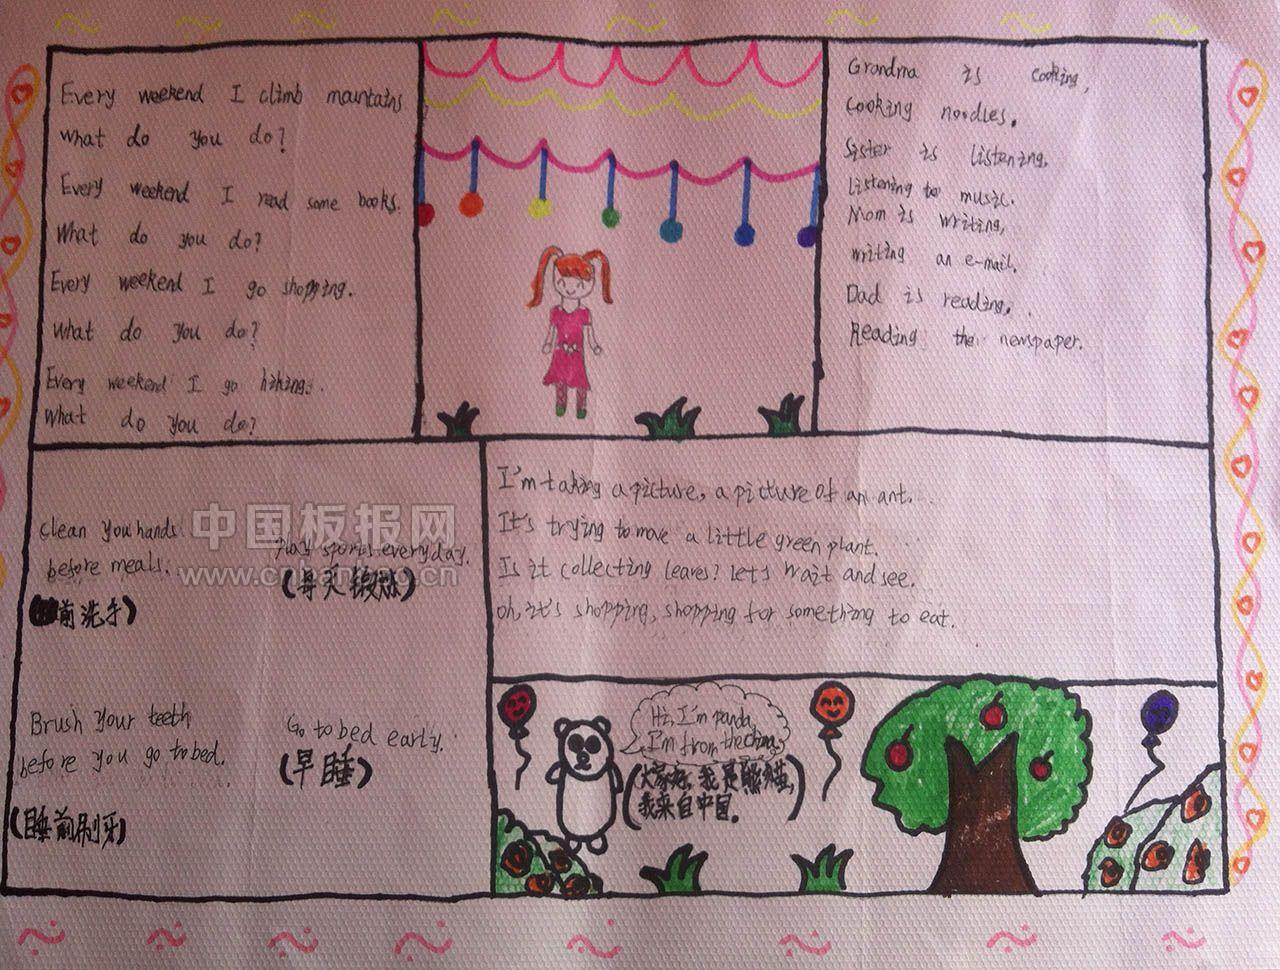 Every weekend I climb mountains
what do you do?
Every weekend I read some books.
What do you do?
Every weekend I go shopping.
What do you do?
Every weekend I go hiking.
What do you do?
Grandma is cooking,
cooking noodles.
Sister is listening,
listening to music.
Mom is writing,
writing an e-mail.
Dad is reading,
Reading the newspaper.
clean you hands
before meals.
前洗手)
Play sports everyday.
(每天锻炼)
Brush your teeth
before you go to bed.
(睡前刷牙)
Go to bed early.
(早睡)
I'm taking a picture, a picture of an ant.
It's trying to move a little green plant.
Is it collecting leaves? let's wait and see.
oh, it's shopping, shopping for something to eat.
Hi, I'm panda,
I'm from the China,
(大家好,我是熊猫,
我来自中国。)
中国板报网
www.cnbanbao.cn